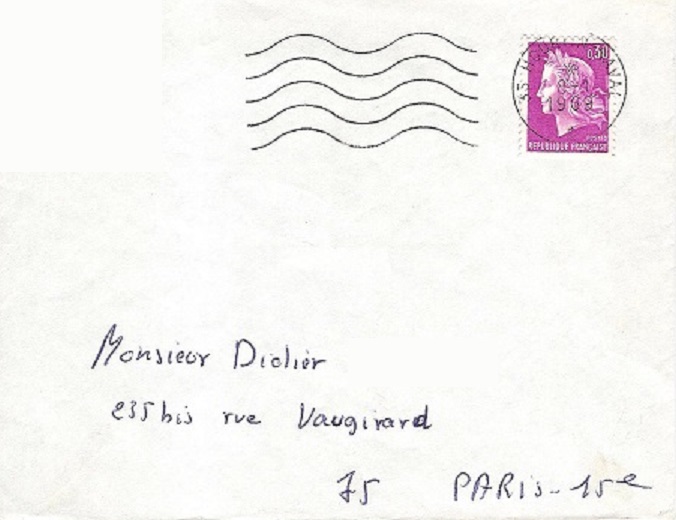 0,30
1969
REPUBLIQUE FRANÇAISE
Monsieur Didier
235 bis rue Vaugirard
75 PARIS-15e